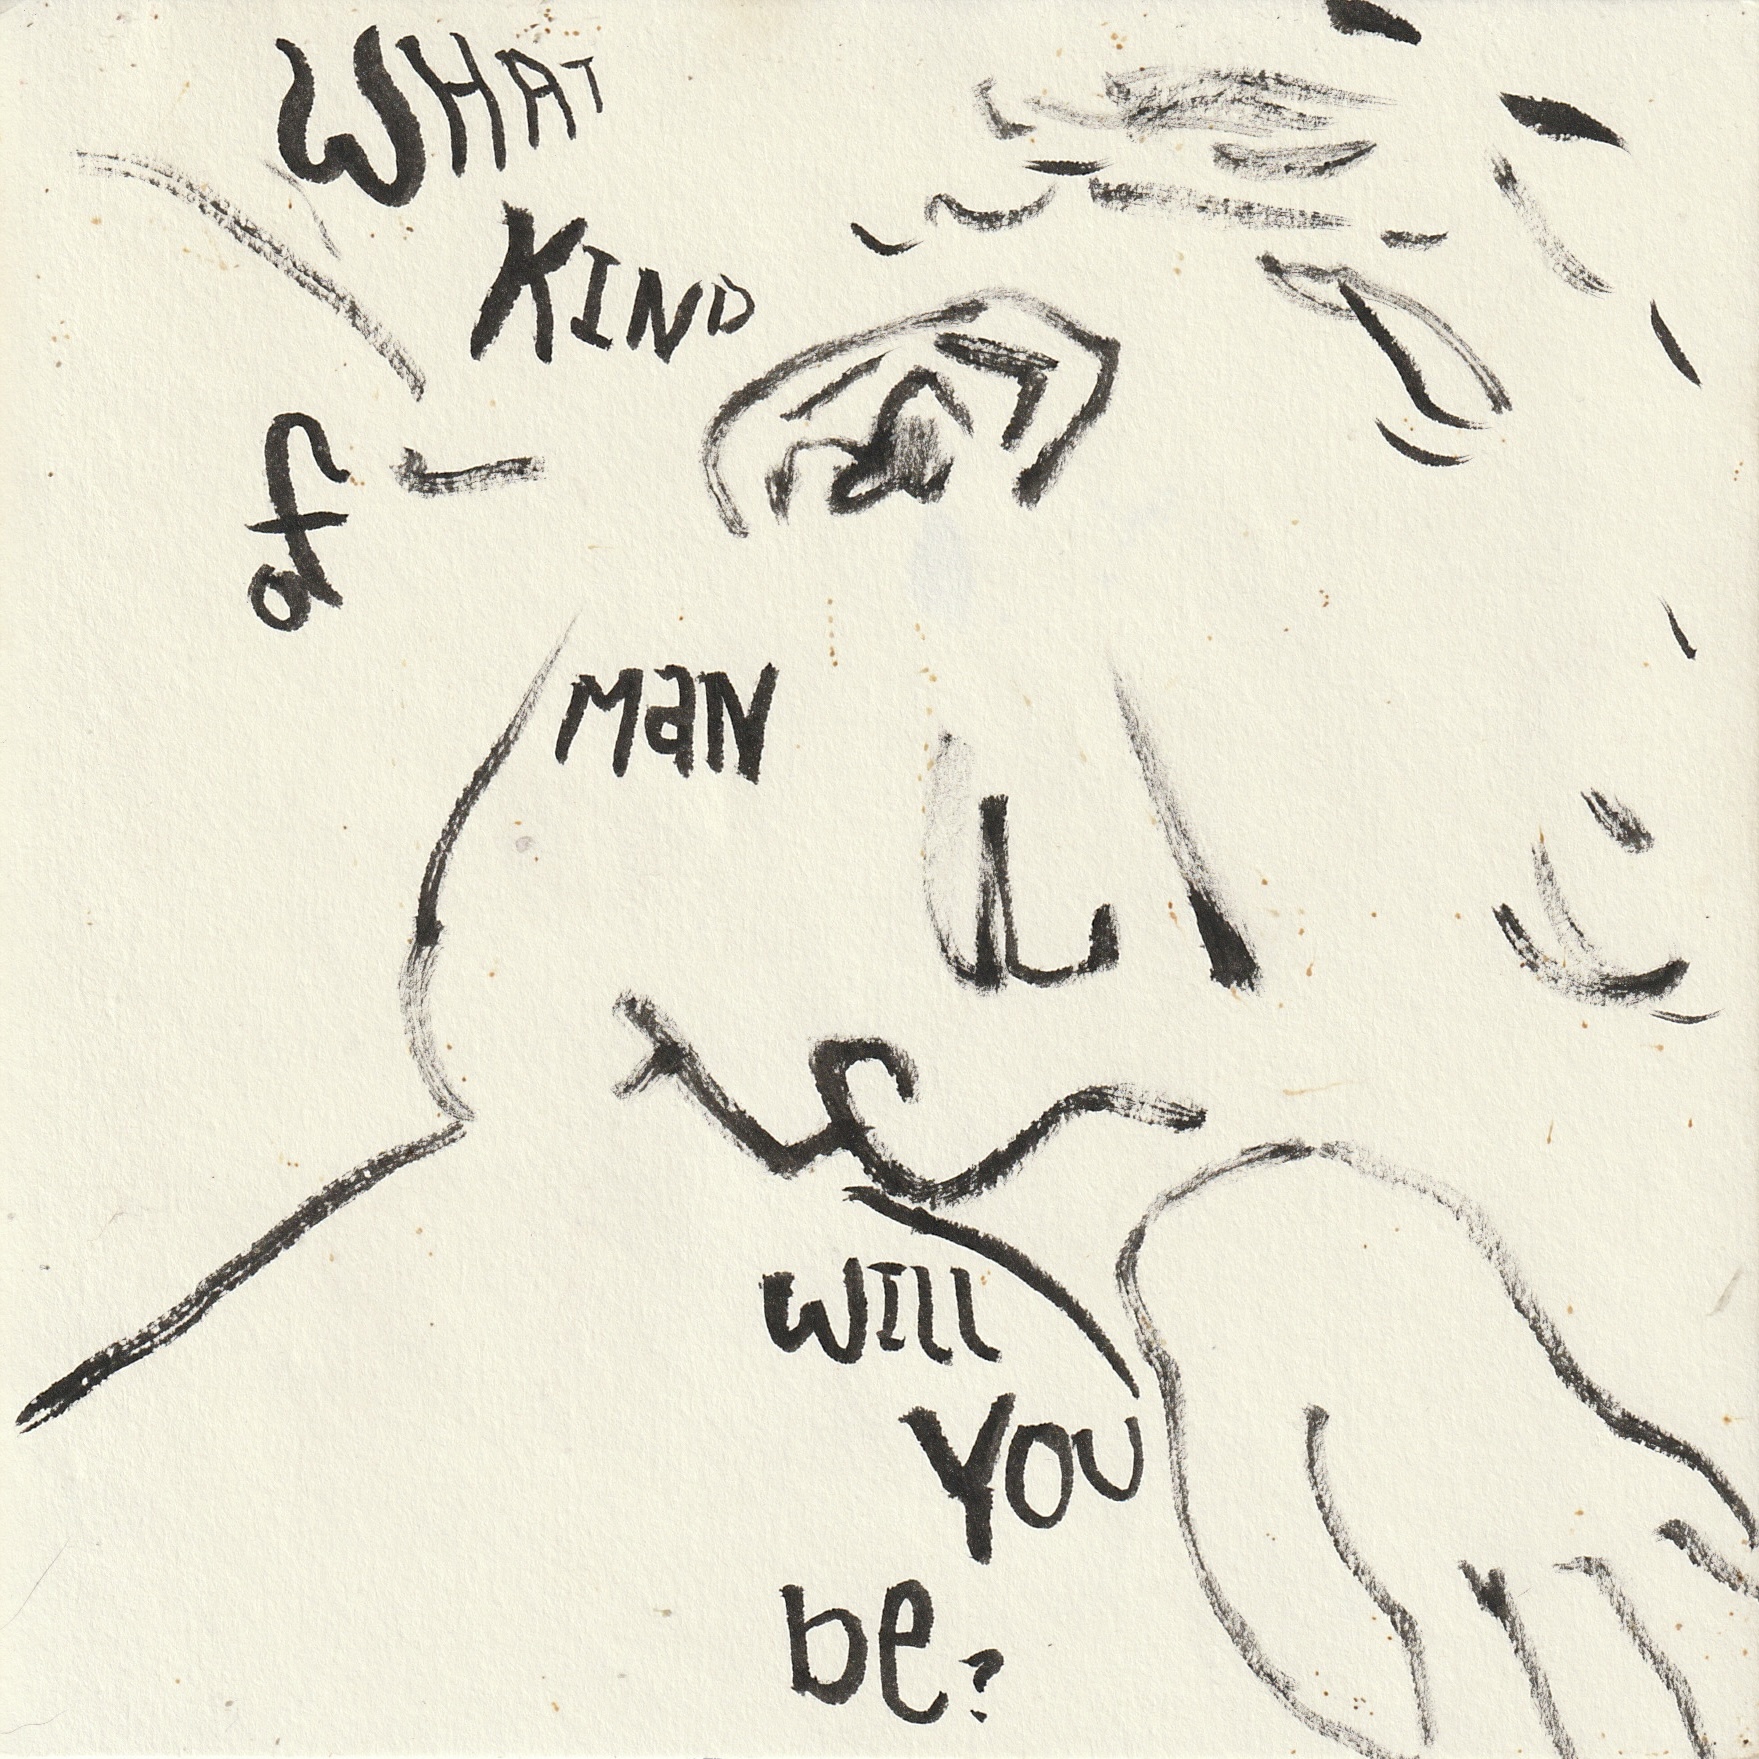 WHAT
KIND
of
MaN
WILL
YOU
be?